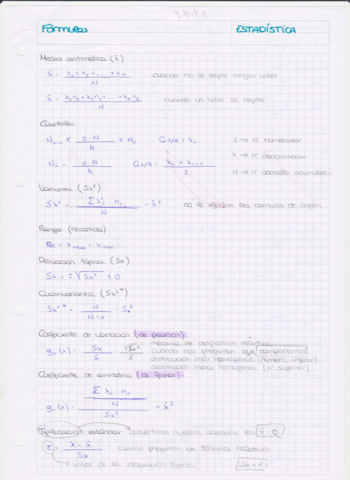 Fórmulas ESTADÍSTICA
Media aritmética (x̄)
x̄ = x₁ + x₂ + ... + xₙ / N cuando no se repite ningún valor
x̄ = x₁n₁ + x₂n₂ + ... + xₙnₙ / N cuando un valor se repite
Cuantiles
Nᵢ₋₁ < s·N / k < Nᵢ Qs/k = xᵢ s → nº numerador
k → nº denominador
Nᵢ = s·N / k Qs/k = xᵢ + xᵢ₊₁ / 2 N → nº variables acumuladas
Varianza (Sx²)
Sx² = Σxᵢ² nᵢ / N - x̄² no le afectan los cambios de origen
Rango (recorrido)
Re = x max - x min
Desviación típica (Sx)
Sx = +√Sx² ≥ 0
Cuasivarianza (Sx²*)
Sx²* = N / N-1 · Sx²
Coeficiente de variación (de pearson)
medidas de dispersión relativa
g₀(x) = Sx / x̄ = √Sx² / x̄ cuando nos preguntan que comparemos
distribución más homogénea (número inferior)
distribución menos homogénea (nº superior)
Coeficiente de asimetría (de fisher)
Σ xᵢ nᵢ
N
Sx³ - x̄³
Tipificación estándar convertimos nuestra variable en x̄ = 0
z = x - x̄ / Sx cuando preguntan en términos relativos
valor de la desviación típica Sx = 1